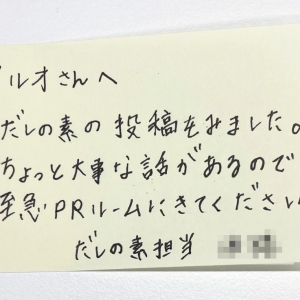 ルオさんへ
だしの素の投稿をみました。
ちょっと大事な話があるので
至急PRルームにきてください
だしの素担当